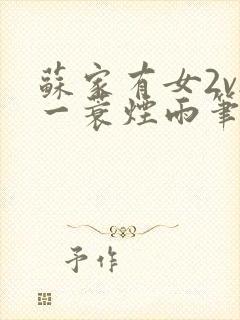 蘇家有女2v
一蓑煙雨筆
予作